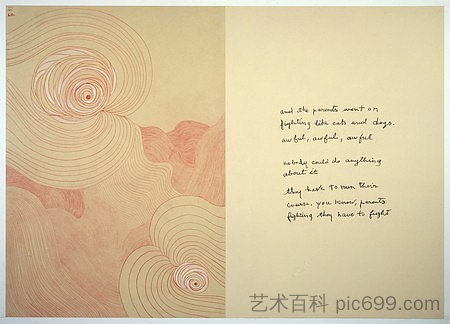 and the parents went on
fighting like cats and dogs.
awful, awful, awful
nobody could do anything
about it
they have to run their
course. you know, parents
fighting they have to fight
艺术百科 pic699.com